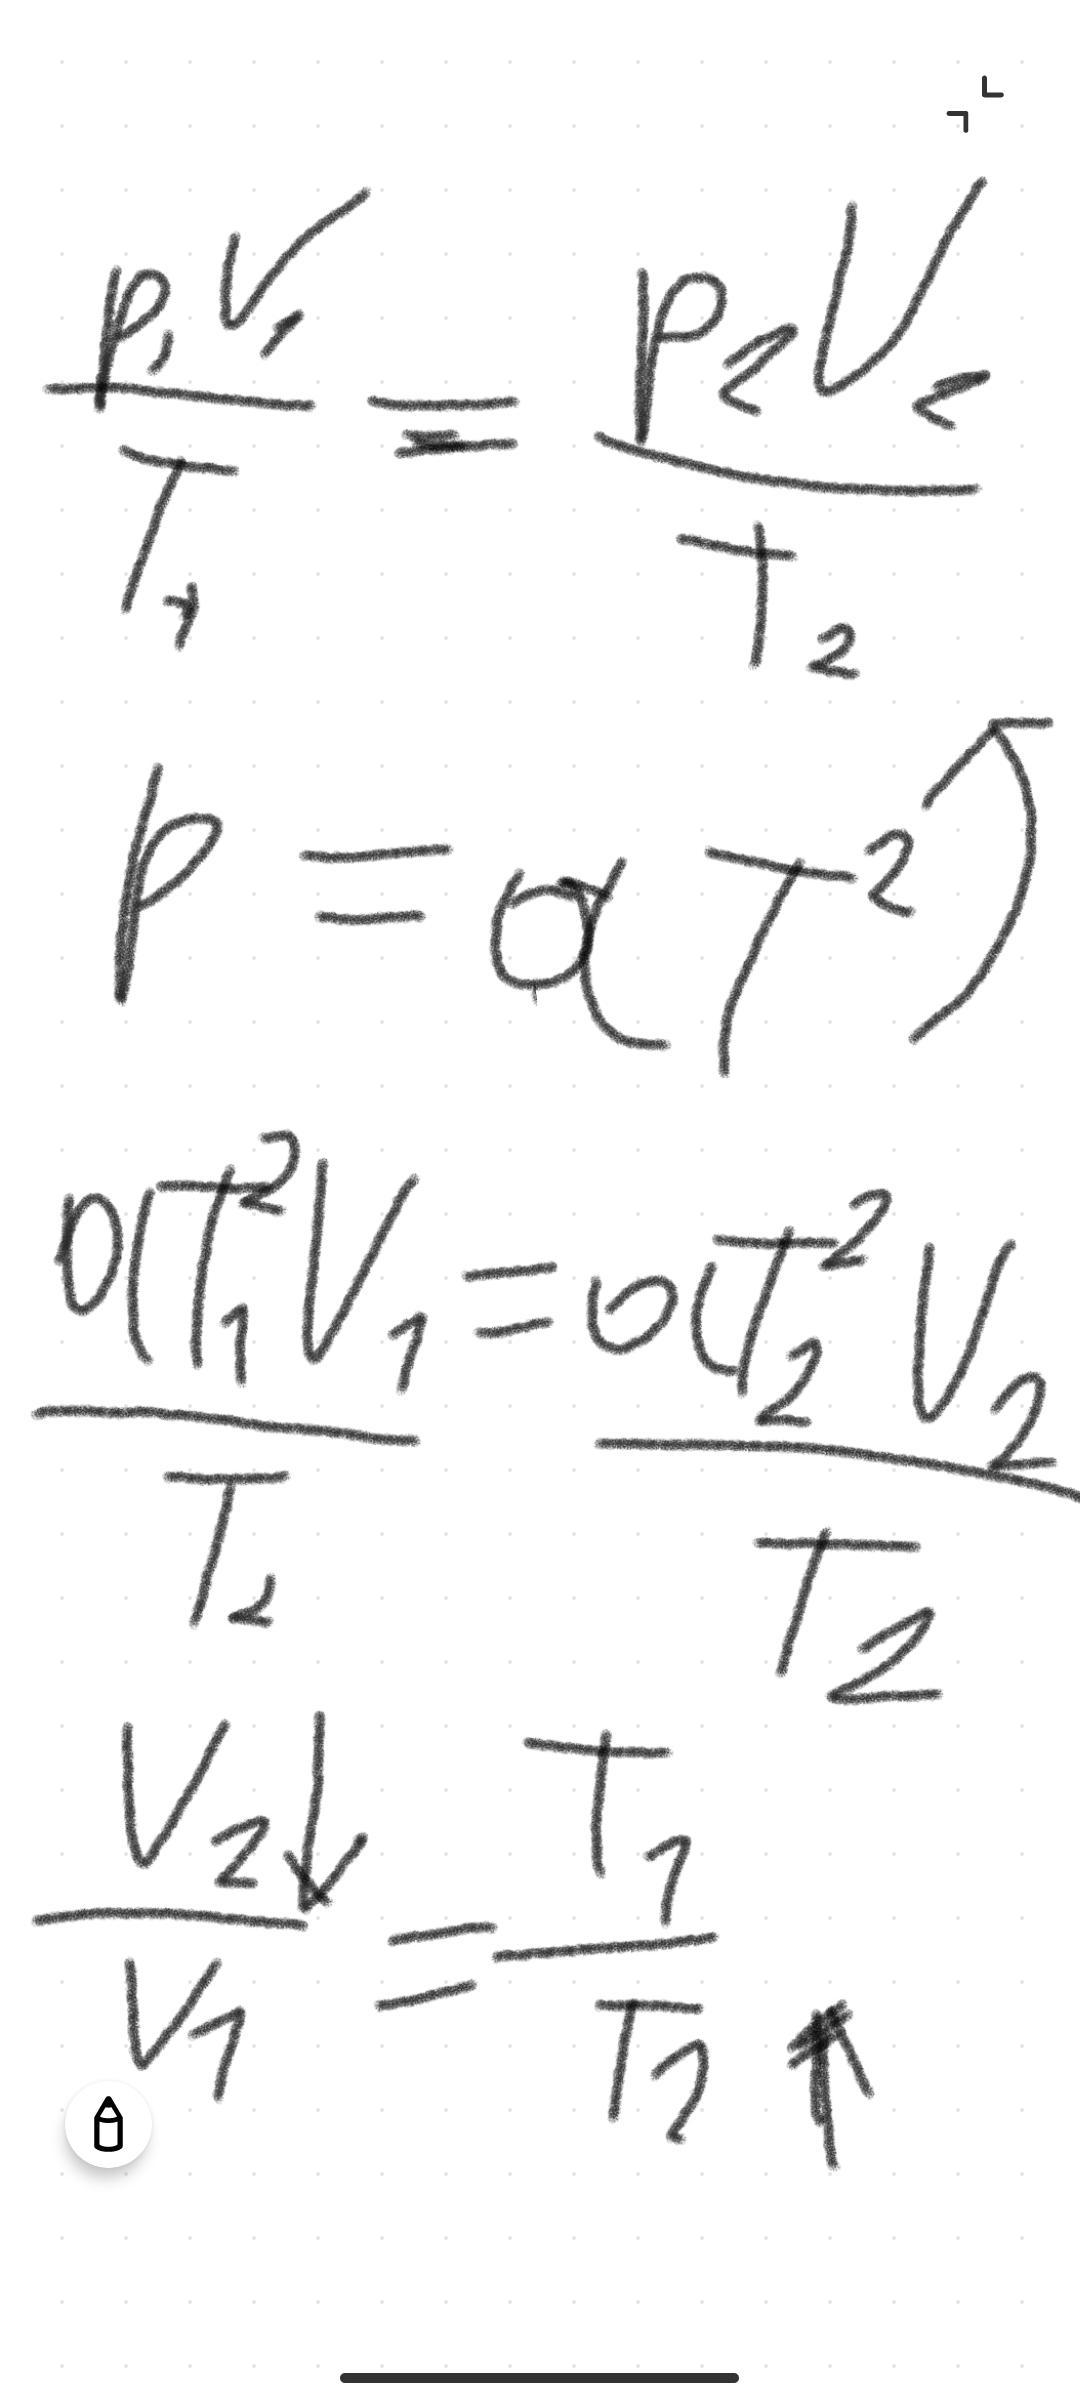 p₁V₁/T₁ = p₂V₂/T₂
p = αT² )
αT₁²V₁/T₂ = αT₂²V₂/T₂
V₂↓/V₁ = T₁/T₂↑